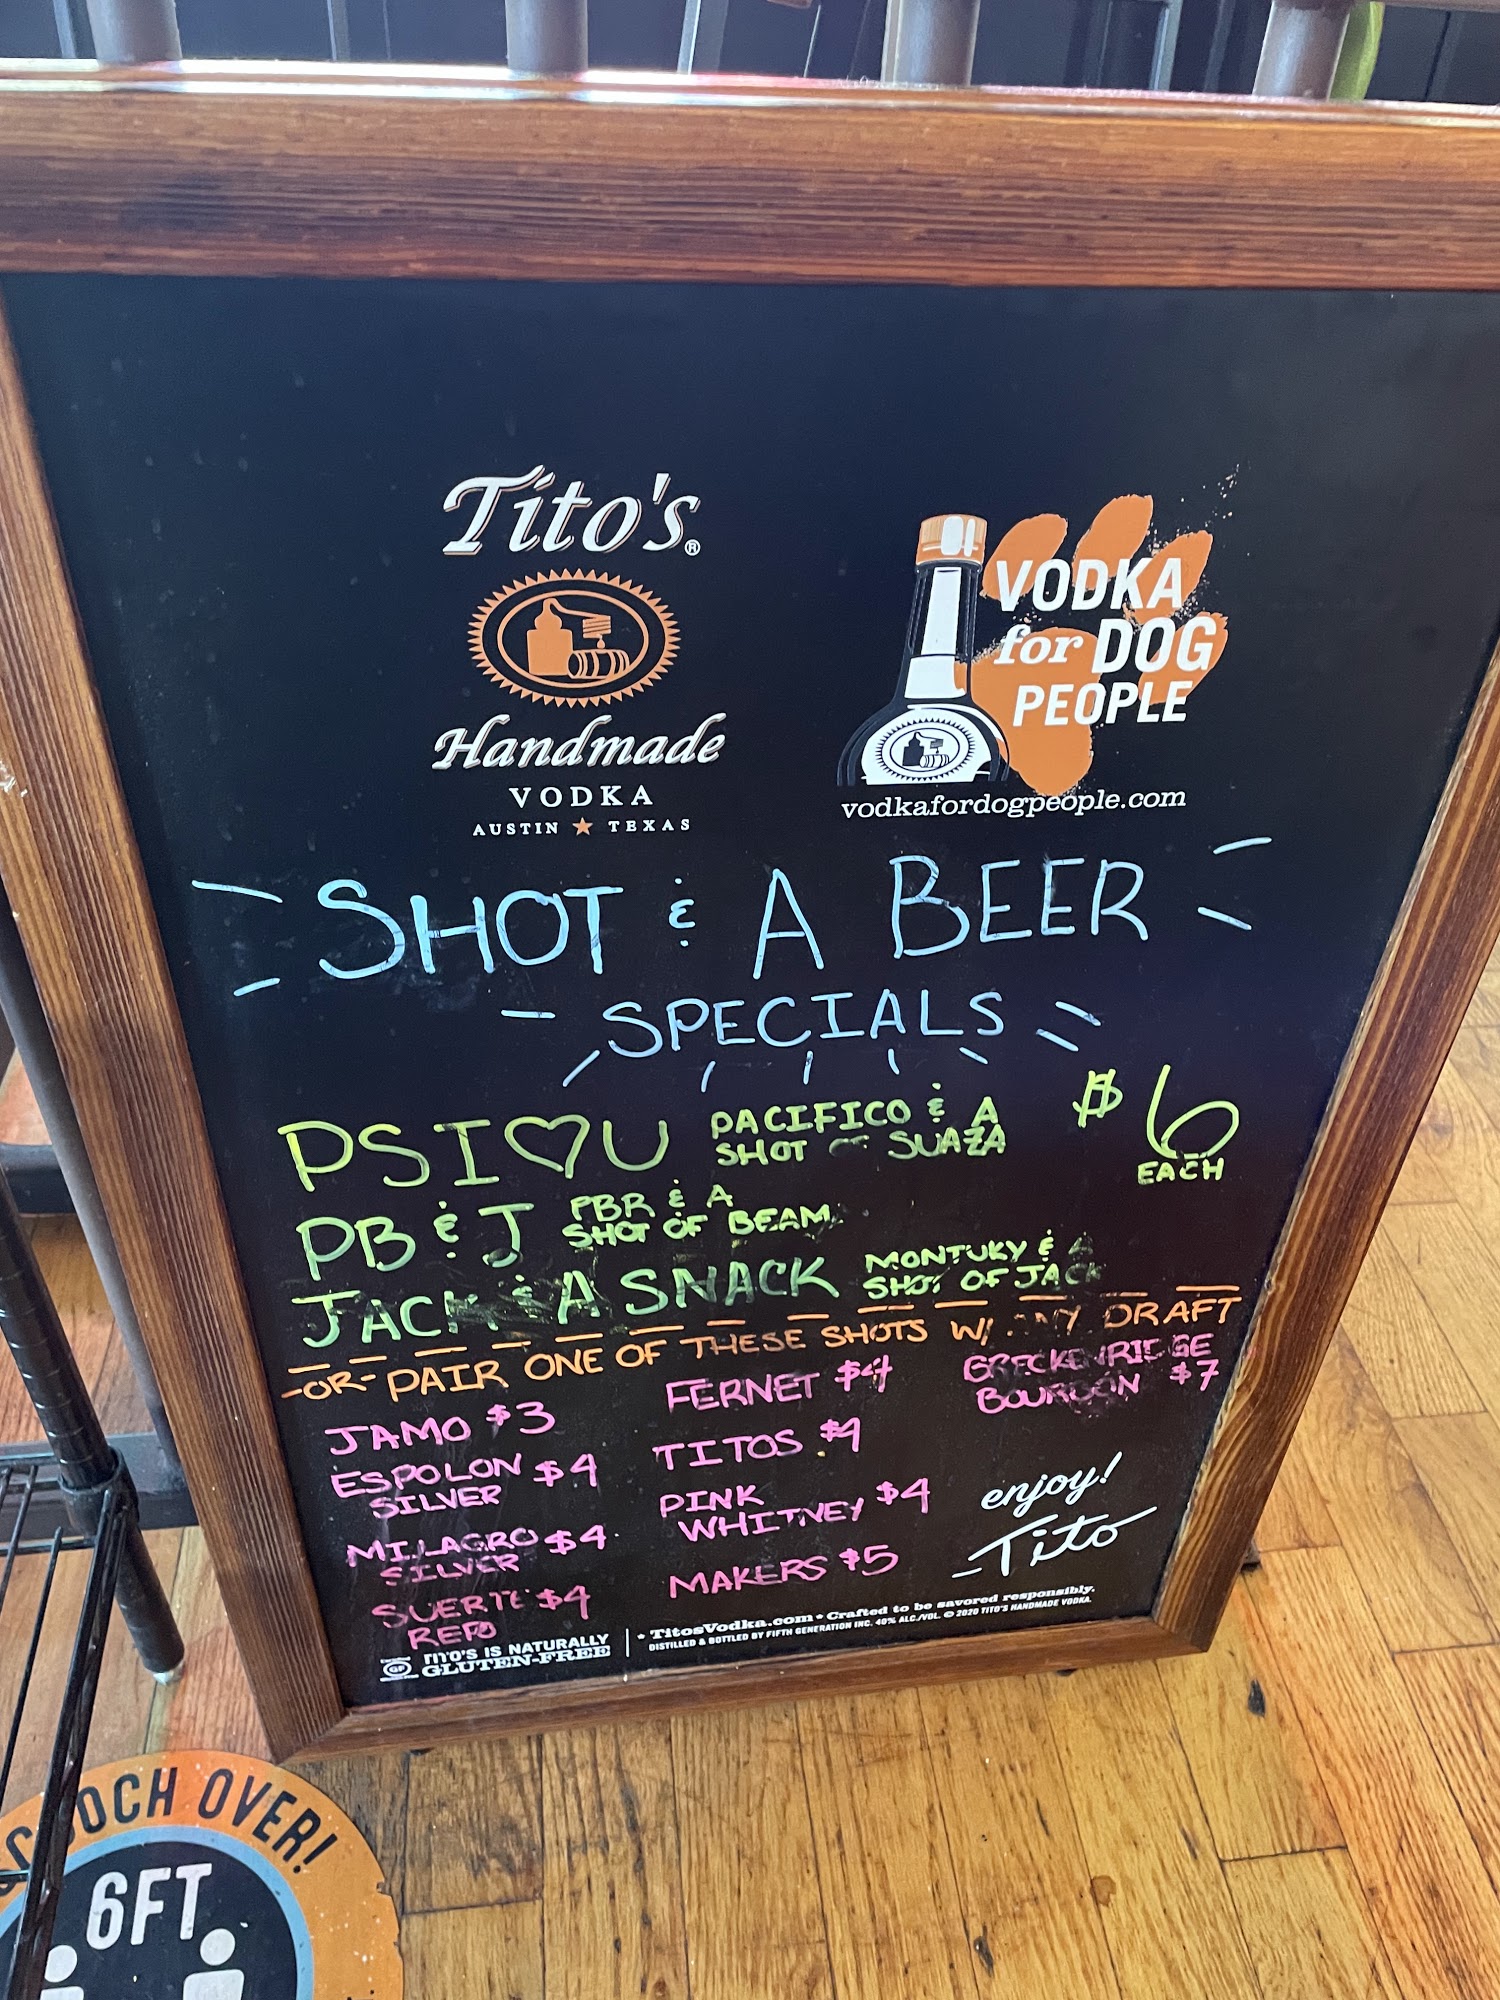 Tito's®
Handmade
VODKA
AUSTIN ★ TEXAS
VODKA
for DOG
PEOPLE
vodkafordogpeople.com
SHOT & A BEER
SPECIALS
PSI♡U PACIFICO & A SHOT OF SUAZA $6 EACH
PB & J PBR & A SHOT OF BEAM
JACK & A SNACK MONTUKY & A SHOT OF JACK
-OR- PAIR ONE OF THESE SHOTS W/ ANY DRAFT
JAMO $3
ESPOLON SILVER $4
MILAGRO SILVER $4
SUERTE REPO $4
FERNET $4
TITOS $4
PINK WHITNEY $4
MAKERS $5
BRECKENRIDGE BOURBON $7
enjoy!
-Tito
GF
TITO'S IS NATURALLY
GLUTEN-FREE
* TitosVodka.com * Crafted to be savored responsibly.
DISTILLED & BOTTLED BY FIFTH GENERATION INC. 40% ALC./VOL. © 2020 TITO'S HANDMADE VODKA.
SCOOCH OVER!
6FT